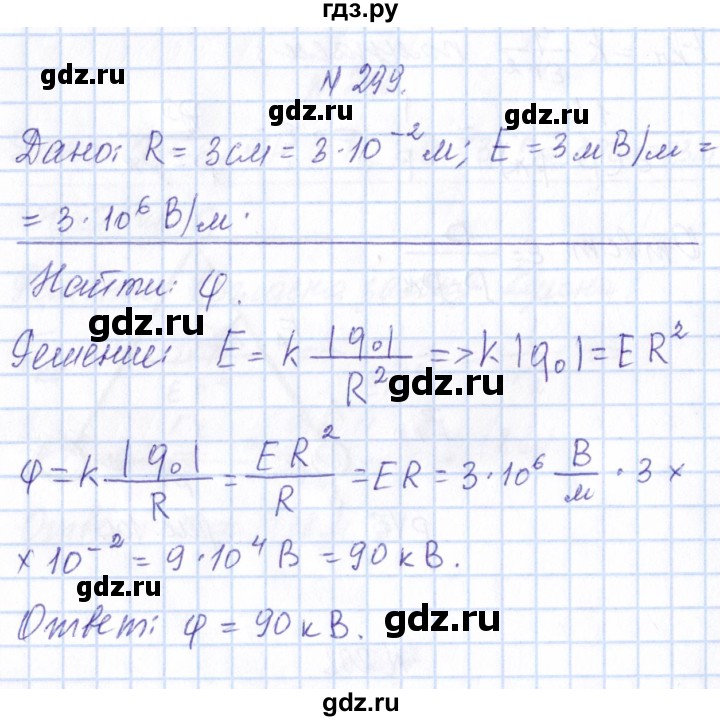 гдз.ру
gdz.ru
N 299.
gdz.ru
gdz.ru
Дано: R = 3 см = 3·10⁻² м; E = 3 мВ/м =
= 3·10⁶ В/м.
Найти: φ.
gdz.ru
Решение: E = k |q₀|/R² => k|q₀| = ER²
gdz.ru
φ = k |q₀|/R = ER²/R = ER = 3·10⁶ В/м · 3 ×
× 10⁻² = 9·10⁴ В = 90 кВ.
gdz.ru
Ответ: φ = 90 кВ.
gdz.ru
gdz.ru